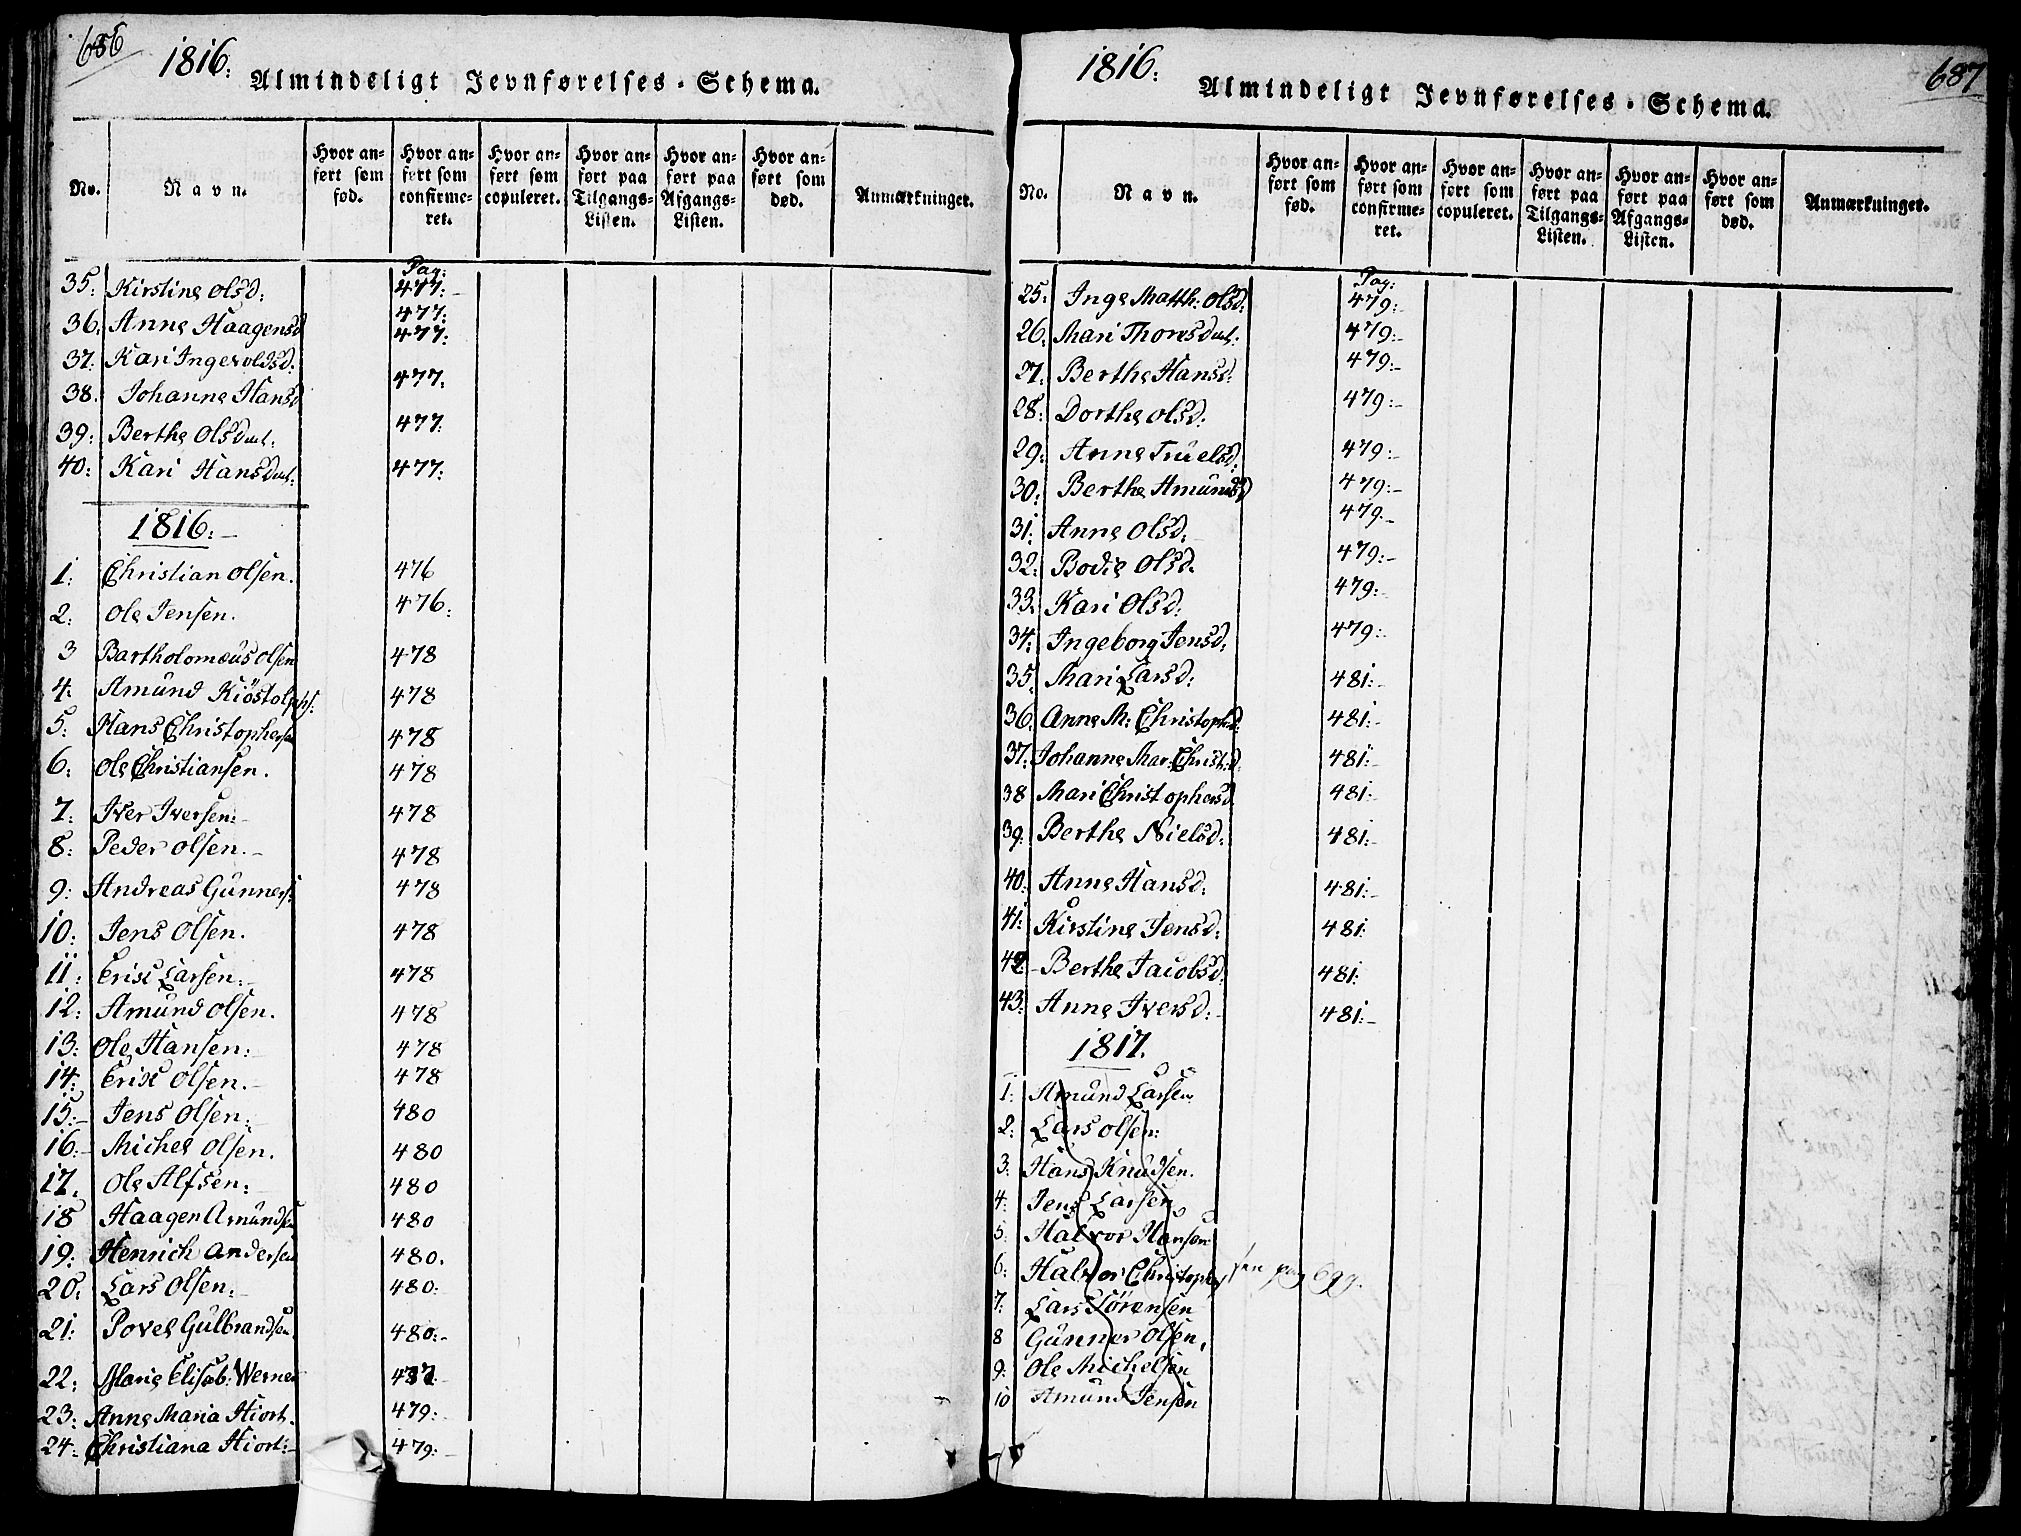 686
1816:
Almindeligt Jevnførelses-Schema.
No.
Navn.
Hvor anført som fød.
Hvor anført som confirmeret.
Hvor anført som copuleret.
Hvor anført paa Tilgangs-Listen.
Hvor anført paa Afgangs-Listen.
Hvor anført som død.
Anmærkninger.
Pag:
35: Kirstine Olsd: 477:
36: Anne Haagensd 477:
37: Kari Ingevoldsd. 477:
38. Johanne Hansd 477:
39: Berthe Olsdat: 477:
40: Kari Hansdat: 477:
1816:
1: Christian Olsen. 476
2: Ole Jensen. 476:
3 Bartholomæus Olsen 478
4: Amund Kiöstolphs: 478
5: Hans Christophersen 478
6: Ole Christiansen. 478
7: Iver Iversen: 478
8: Peder Olsen. 478
9: Andreas Gunners: 478
10: Jens Olsen. 478
11: Erik Larsen: 478
12: Amund Olsen. 478
13: Ole Hansen: 478
14: Erik Olsen. 478
15: Jens Olsen: 480
16: Michel Olsen. 480
17. Ole Alfsen: 480
18 Haagen Amundsen 480
19: Henrich Andersen 480.
20: Lars Olsen: 480:
21: Povel Gulbrandsen 480:
22: Marie Elisab: Werner
23: Anne Maria Hiort. 479:
24: Christiana Hiort: 479:
687
1816:
Almindeligt Jevnførelses-Schema.
No.
Navn.
Hvor anført som fød.
Hvor anført som confirmeret.
Hvor anført som copuleret.
Hvor anført paa Tilgangs-Listen.
Hvor anført paa Afgangs-Listen.
Hvor anført som død.
Anmærkninger.
Pag:
25: Inge Matth: Olsd: 479:
26: Mari Thoresdat: 479:
27: Berthe Hansd: 479:
28: Dorthe Olsd: 479:
29: Anne Truelsd: 479:
30: Berthe Amundsd 479:
31: Anne Olsd: 479.
32: Bodie Olsd. 479:
33: Kari Olsd: 479:
34: Ingeborg Jensd: 479:
35: Mari Larsd: 481:
36: Anne M: Christophd: 481:
37: Johanne Mar: Christ:d: 481:
38 Mari Christophersd 481:
39: Berthe Nielsd: 481:
40: Anne Hansd: 481:
41: Kirstine Jensd: 481:
42 Berthe Jacobsd: 481:
43: Anne Iversd: 481:
1817.
1: Amund Larsen
2: Lars Olsen:
3: Hans Knudsen.
4: Jens Larsen
5: Halvor Hansen
6: Halvor Christophs pag 699.
7: Lars Sörensen
8 Gunner Olsen,
9: Ole Michelsen
10 Amund Jensen